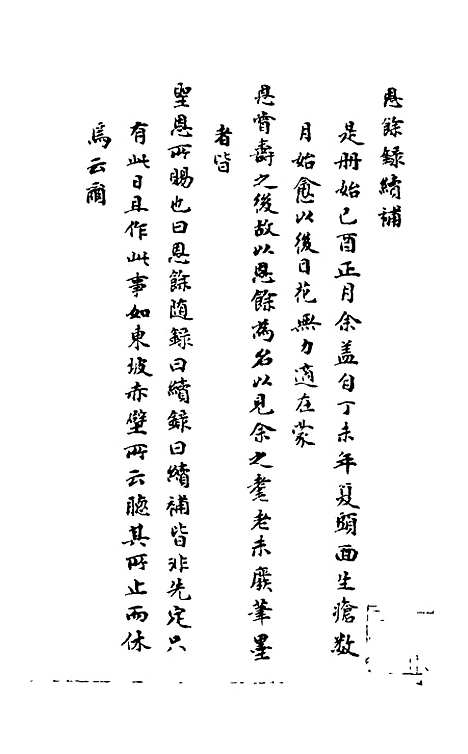 恩餘録續補
是册始己酉正月余盖自丁未年夏頭面生瘡数
月始愈以後目花無力適在蒙
恩賞壽之後故以恩餘為名以見余之耄老未廢筆墨
者皆
聖恩所賜也曰恩餘随録曰續録曰續補皆非先定只
有此日且作此事如東坡赤壁所云聽其所止而休
焉云爾